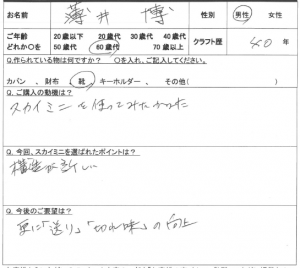 お名前 薄井 博 性別 男性 女性
ご年齢 20歳以下 20歳代 30歳代 40歳代 クラフト歴 40 年
どれか○を 50歳代 60歳代 70歳以上
Q.作られている物は何ですか? ○を入れ、ご記入してください。
カバン 、 財布 、 靴 、 キーホルダー 、 その他( )
Q.ご購入の動機は?
スカイミニを使ってみたかった
Q.今回、スカイミニを選ばれたポイントは?
構造が新しい
Q.今後のご要望は?
更に「送り」「切れ味」の向上